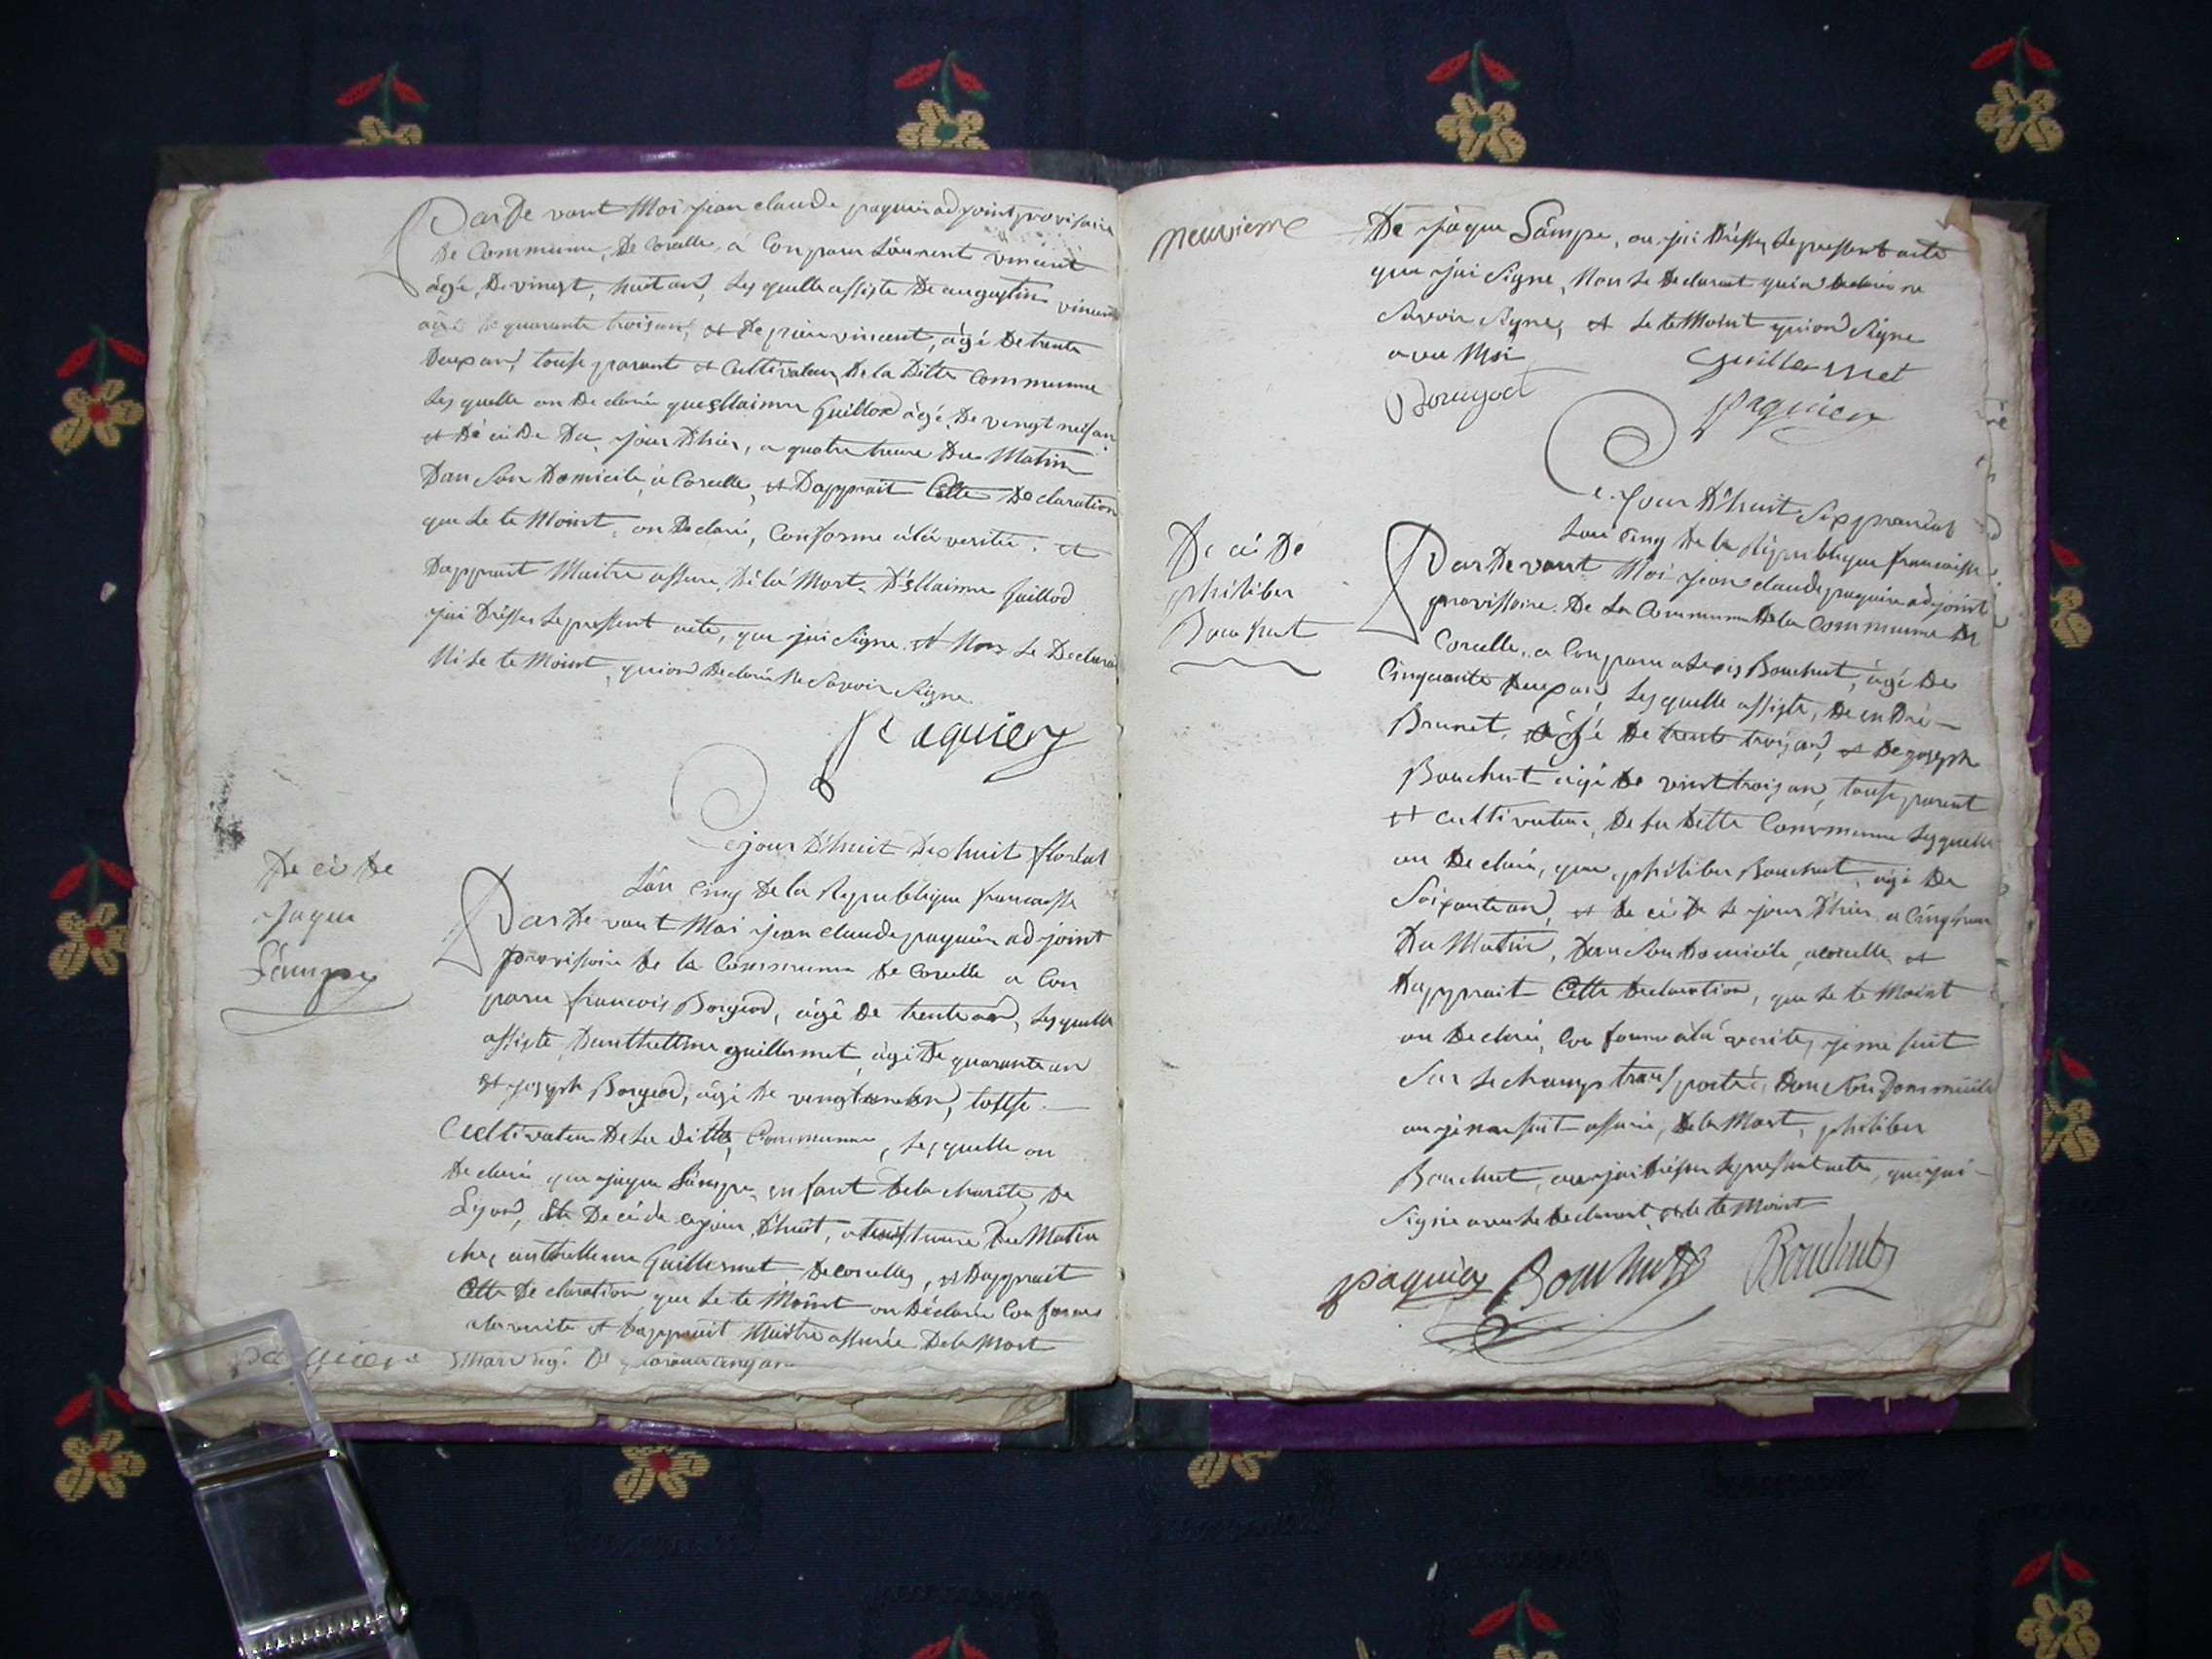 Par De vant Moi jean claude paquier ad joint provisoire
De Commune, De Corcelle a Conparu Laurent vincent
âgé, De vingt, huit an, Les quelle assiste De augustin vincent
âgé de quarante trois an, et De piere vincent, âgé De trente
Deux an, touse parent et Cultivateur De la Ditte Commune
Les quelle on De claré que Guillod âgé De vingt neuf an
et Dé cé De Du jour D'hier, a quatre heure Du Matin
Dan Son Domicile, a Corcelle, et D'apprait Cette De claration
que Le te Moint, on De claré, Conforme a la verité, et
D'apprait Maitre assure, De la Mort Guillod
j'ai Drésser Le pressent acte, que j'ai Signe, et Non Le Declarant
Ni Le te Moint, qui on De claré Ne Savoir Signe
Paquier
Ce jour D'huit Dix huit floréal
L'an Cinq De la République francaisse
De cé De
Jaque
Sâmpe
Par De vant Moi jean claude paquier ad joint
provissoire De la Commune De Corcelle a Con
paru francois Borgeod, âgé De trente an, Les quelle
assiste D'anthelme guillermet âgé De quarante an
et joseph Borgeod, âgé De vingt an, tousse
Cultivateur De La ditte Commune, Les quelle on
De claré que jaque Sâmpe en fant De la charité De
Lyon, Et De cé de ce jour D'huit, a heure Du Matin
chez anthelleme Guillermet De Corcelle, et D'apprait
Cette De claration que Le te Moint on Déclaré Con forme
a la verité et D'apprait Maitre assurée De la Mort
paquier âgé De an
neuvieme
De jaque Sâmpe, ou j'ai Drésser Le pressent acte
que j'ai Signe, Non Le Declarant qui a Declaré ne
Savoir Signe, et Le te Moint qui on Signe
avec Moi
Guillermet
Borgeod
Paquier
Ce jour D'huit Six prairial
L'an Cinq De la République francaisse
De cé De
philiber
Bouchut
Par De vant Moi jean claude paquier ad joint
provissoire De La Commune De la Commune De
Corcelle, a Conparu alexis Bouchut, âgé De
Cinquante Deux an, Les quelle assiste, De en Dré
Brunet, âgé De trente trois an, et De joseph
Bouchut âgé De vint trois an, touse parent
et cultivateur, De La Ditte Commune Les quelle
on De claré, que philiber Bouchut, âgé De
Soixante an, et De cé De Le jour D'hier, a Cinq heure
Du Matin, Dan Son Domicile, a Corcelle, et
D'apprait Cette Declaration, que Le te Moint
on De claré, Con forme a la verité, je me suit
Sur Le champs trans portée, Dan Son Dommicile
ou je me suit assuré, De la Mort, philiber
Bouchut, ou j'ai Drésser Le pressent acte, que j'ai
Signé avec Le Declarant, et Le te Moint
Paquier Bouchut Bouchut